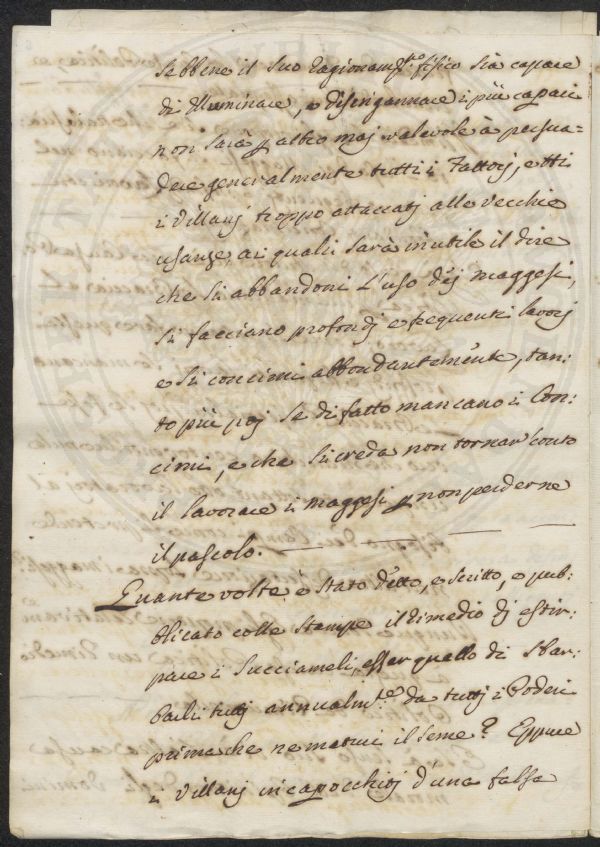 Sebbene il suo ragionam.to fisico sia capace
di illuminare, e disingannare i più capaci
non sarà p altro maj valevole à persua-
dere generalmente tutti i Fattorj, e tti
i Villanj troppo attaccatj alle vecchie
usanze, ai quali sarà inutile il dire
che si abbandoni l'uso dej maggesi,
si facciano profondj e frequenti lavorj
e si concimi abbondantemente, tan-
to più poj se di fatto mancano i Con-
cimi, e che si creda non tornar conto
il lavorare i maggesi p non perderne
il pascolo.
Quante volte è stato detto, e scritto, e pub-
blicato colle stampe il rimedio dj estir-
pare i Succiameli, esser quello di sbar-
barli tuttj annualm.te da tuttj i Poderi
prima che ne maturi il seme? Eppure
i Villanj incapocchitj d'una falsa